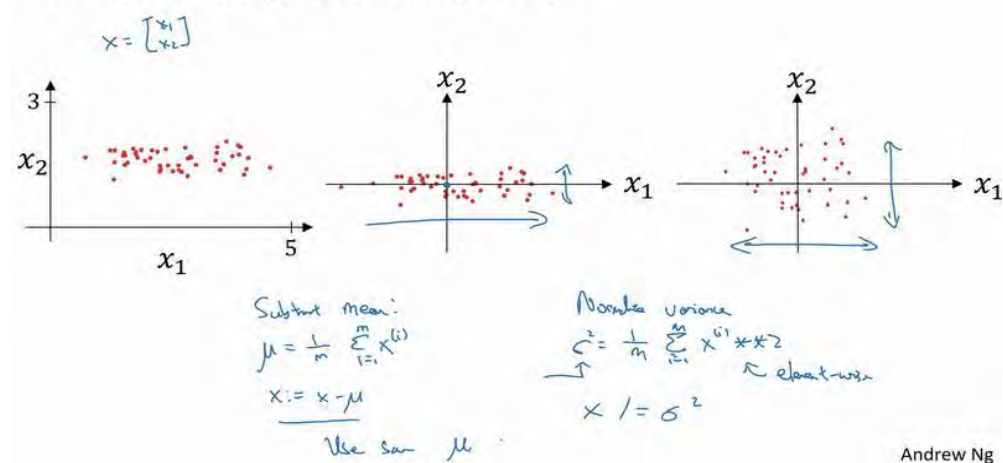 x = [x1 x2]
3
x2
5
x1
x2
x1
x2
x1
Subtract mean:
μ = 1/m Σ_{i=1}^{m} x^(i)
x := x - μ
Use same μ
Normalize variance
σ² = 1/m Σ_{i=1}^{m} x^(i) ** 2
element-wise
x /= σ²
Andrew Ng